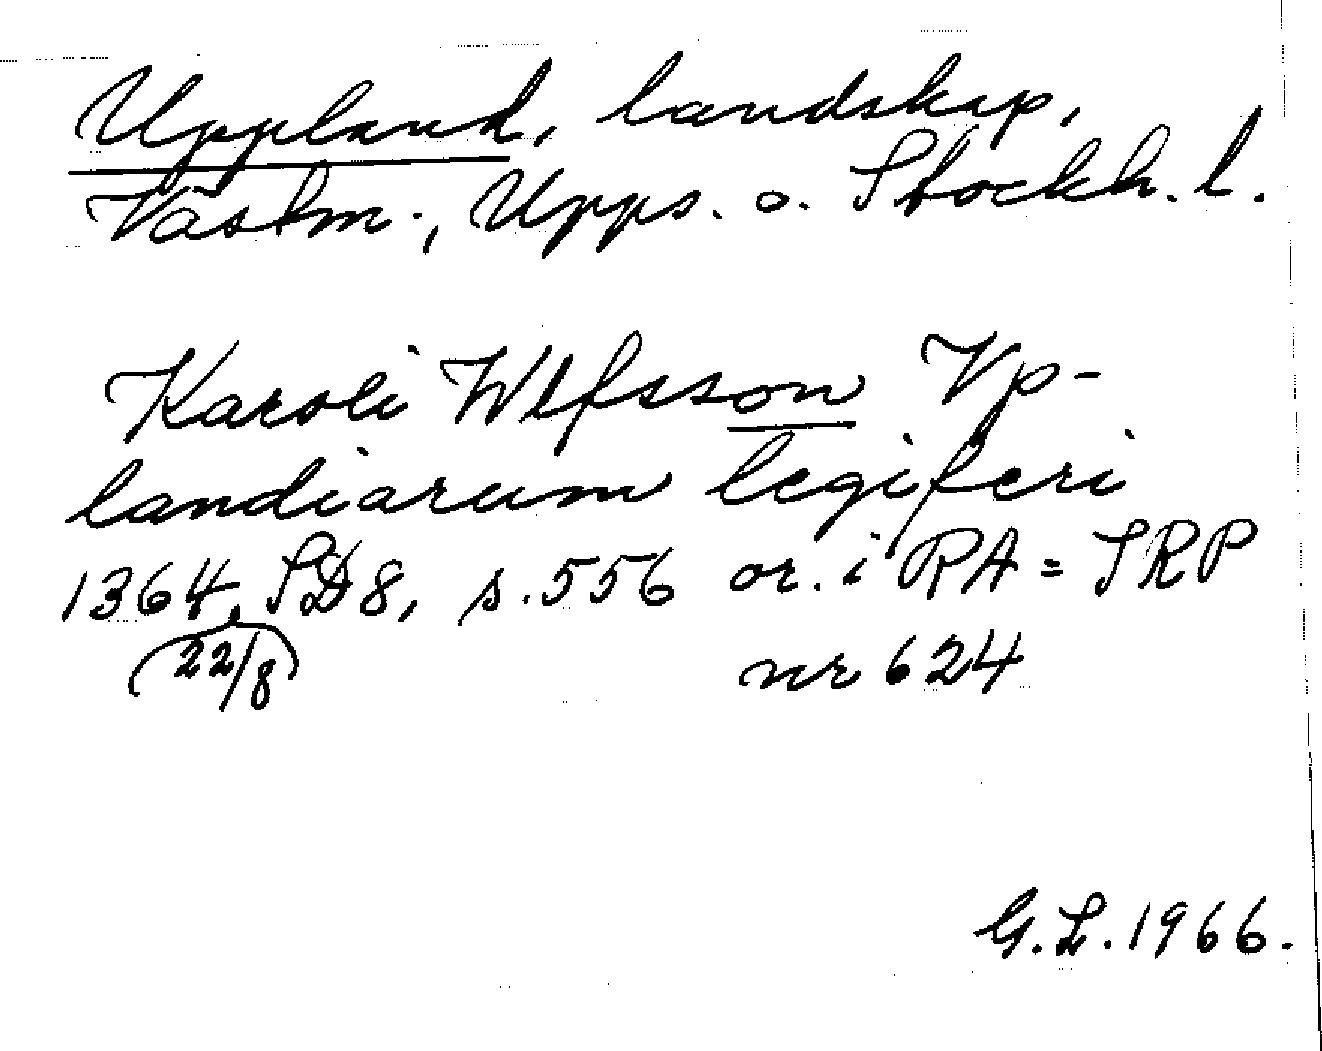 Uppland, landskap,
Västm., Upps. o. Stockh. l.
Karoli Wlfsson Vp-
landiarum legiferi
1364, SD8, s. 556 or. i RA = SRP
(22/8) nr 624
G. L. 1966.